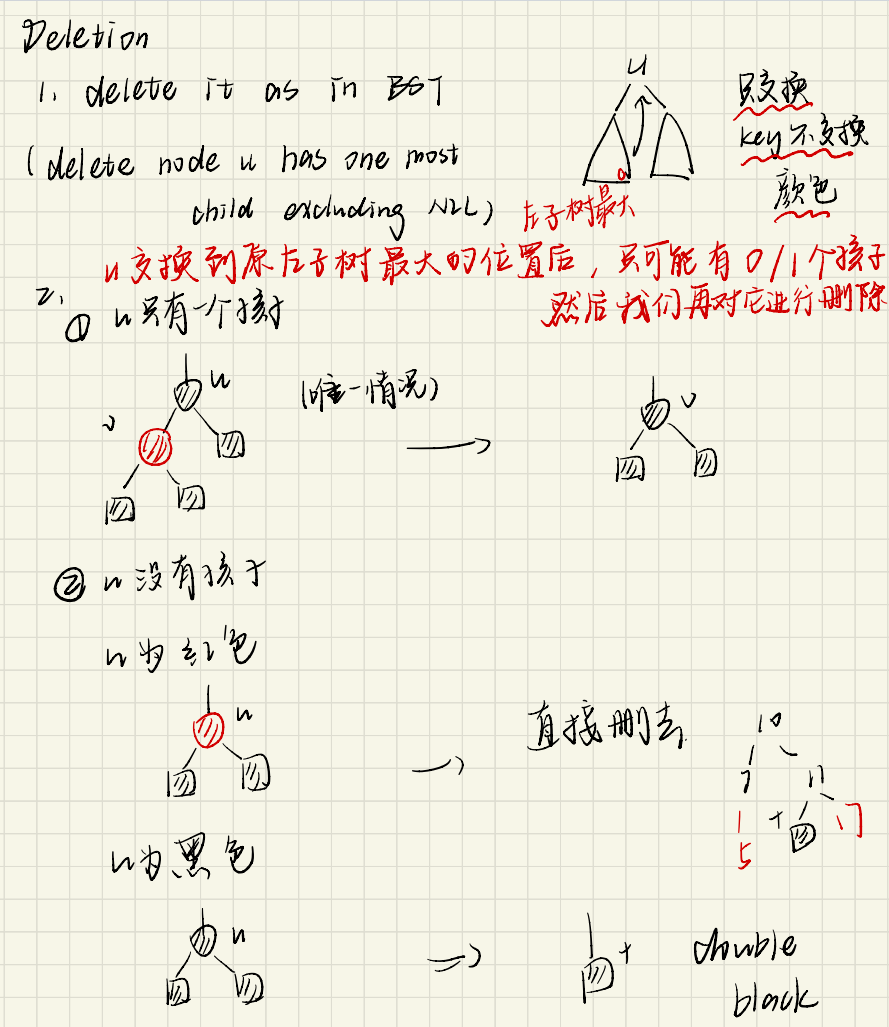 Deletion
1. delete it as in BST
(delete node u has one most
child excluding NIL)
u
a
左子树最大
只交换
key 不交换
颜色
u 交换到原左子树最大的位置后，只可能有 0/1 个孩子
然后我们再对它进行删除
2.
① u 只有一个孩子
u
v
(唯一情况)
v
② u 没有孩子
u 为红色
u
直接删去
10
7 11
5 + 17
u 为黑色
u
+ double
black